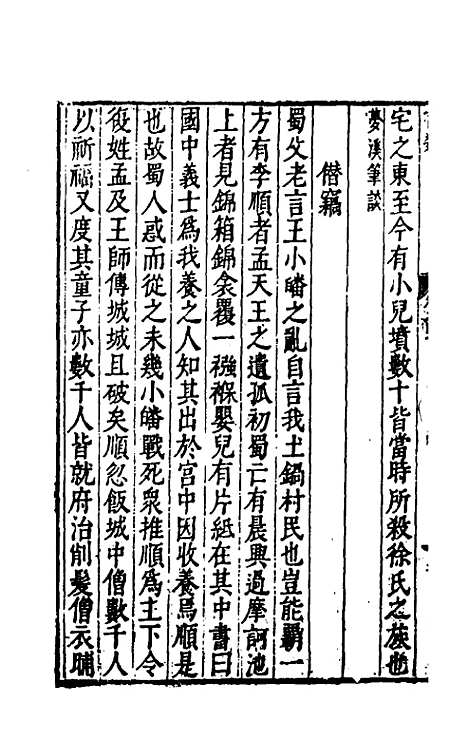 宅之東至今有小兒墳數十皆當時所殺徐氏之族也
夢溪筆談
僭竊
蜀父老言王小皤之亂自言我土鍋村民也豈能霸一
方有李順者孟天王之遺孤初蜀亡有晨興過摩訶池
上者見錦箱錦衾覆一襁褓嬰兒有片紙在其中書曰
國中義士爲我養之人知其出於宮中因收養焉順是
也故蜀人惑而從之未幾小皤戰死衆推順爲主下令
復姓孟及王師傅城城且破矣順忽飯城中僧數千人
以祈福又度其童子亦數千人皆就府治削髮僧衣晡